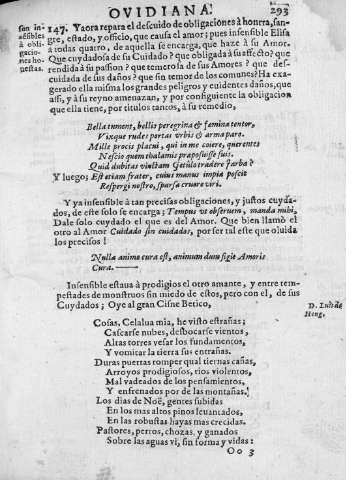 OVIDIANA.
293
son insẽ
sibles à
obli-
gacio-
nes ho
nestas.
147. Ya ora repara el descuido de obligaciones à honrra, san-
gre, estado, y officio, que causa el amor; pues insensible Elisa
à todas quatro, de aquella se encarga, que haze à su Amor.
Que cuydadosa de su Ciudad? que obligada à su affecto? que
rendida à su passion? que temerosa de sus Amores? que des-
cuidada de sus daños? que sin temor de los comunes? Ha exa-
gerado ella misma los grandes peligros y euidentes daños, que
assi, y à su reyno amenazan, y por consiguiente la obligacion
que ella tiene, por titulos tantos, à su remedio,
Bella tument, bellis peregrina & fæmina tentor,
Vixque rudes portas vrbis & arma paro.
Mille procis placui, qui in me coiere, querentes
Nescio quem thalamis praposuisse suis.
Quid dubitas vinctam Getulo tradere Iarbæ?
Y luego; Est etiam frater, cuius manus impia poscit
Respergi nostro, sparsa cruore viri.
Y ya insensible à tan precisas obligaciones, y justos cuyda-
dos, de este solo se encarga; Tempus vt obseruem, manda mihi,
Dale solo cuydado el que es del Amor. Que bien llamò el
otro al Amor Cuidado sin cuidados, por ser tal este que oluida
los precisos!
Nulla anima cura est, animum dum figit Amoris
Cura.
Insensible estaua à prodigios el otro amante, y entre tem-
pestades de monstruos sin miedo de estos, pero con el, de sus
Cuydados; Oye al gran Cisne Betico,
D. Luis de
Gong.
Cosas, Celalua mia, he visto estrañas;
Cascarse nubes, desbocarse vientos,
Altas torres vesar los fundamentos,
Y vomitar la tierra sus entrañas.
Duras puentas romper qual tiernas cañas,
Arroyos prodigiosos, rios violentos,
Mal vadeados de los pensamientos,
Y enfrenados por de las montañas,
Los dias de Noè, gentes subidas
En los mas altos pinos leuantados,
En las robustas hayas mas crecidas.
Pastores, perros, chozas, y ganados
Sobre las aguas vi, sin forma y vidas:
Oo 3